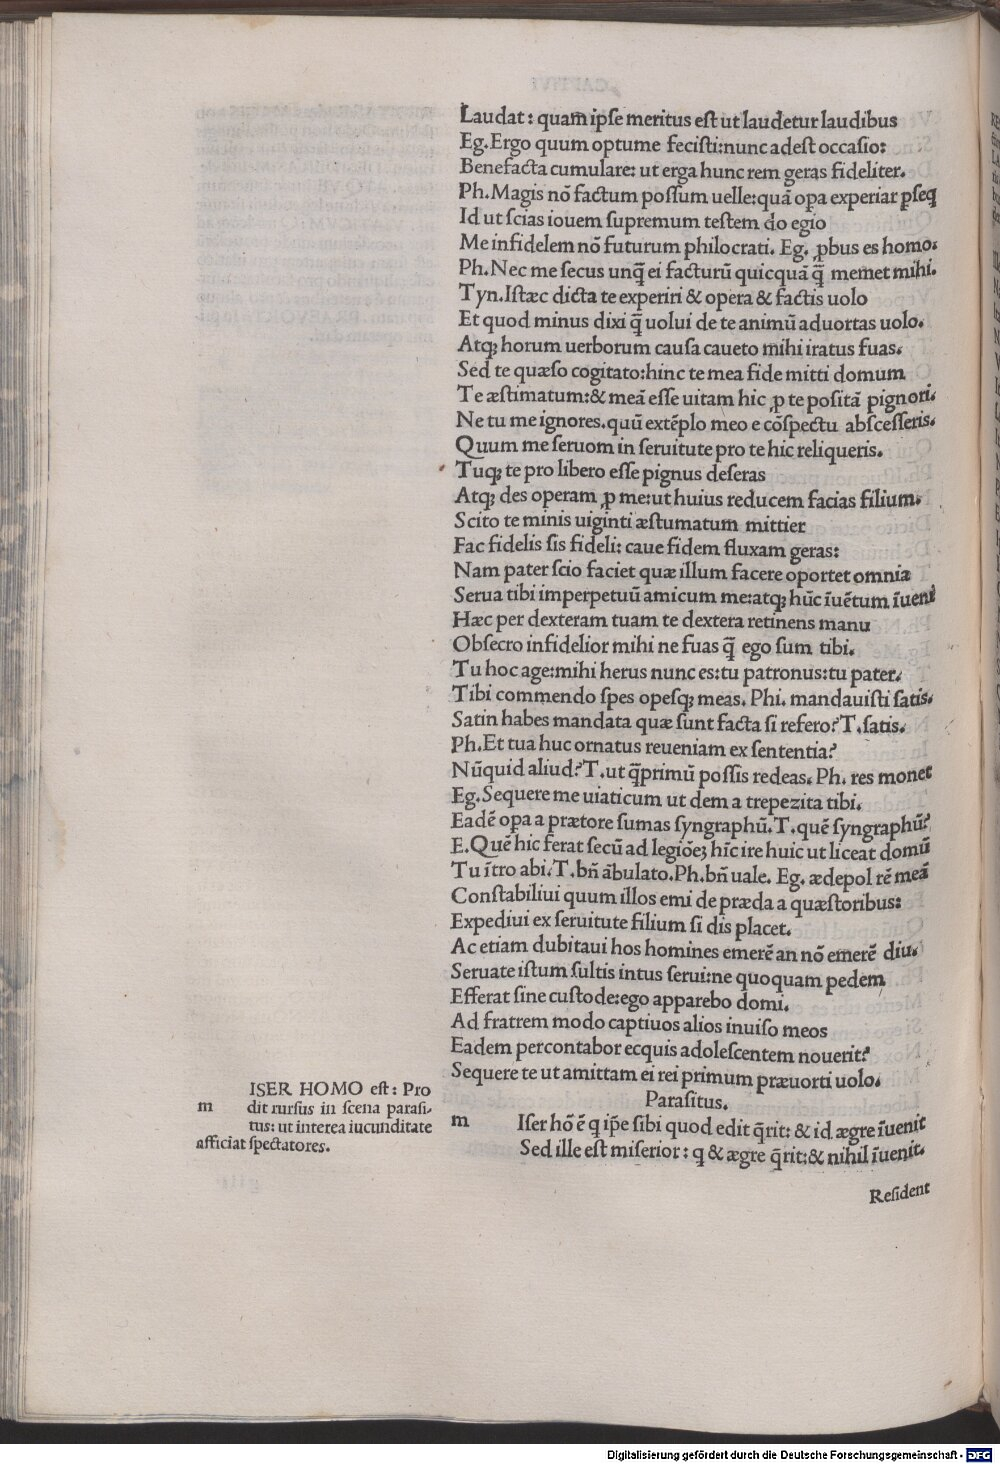 Laudat: quam ipſe meritus eſt ut laudetur laudibus
Eg. Ergo quum optume feciſti: nunc adeſt occaſio:
Benefacta cumulare: ut erga hunc rem geras fideliter.
Ph. Magis nõ factum poſſum uelle: quã opa experiar ꝑſeq
Id ut ſcias iouem ſupremum teſtem do egio
Me infidelem nõ futurum philocrati. Eg. ꝓbus es homo.
Ph. Nec me ſecus unq̃ ei facturũ quicquã q̃ memet mihi.
Tyn. Iſtæc dicta te experiri & opera & factis uolo
Et quod minus dixi q̃ uolui de te animũ aduortas uolo.
Atq; horum uerborum cauſa caueto mihi iratus fuas.
Sed te quæſo cogitato: hinc te mea fide mitti domum
Te æſtimatum: & meã eſſe uitam hic ꝓ te poſitã pignori.
Ne tu me ignores. quũ extẽplo meo e cõſpectu abſceſſeris.
Quum me ſeruom in ſeruitute pro te hic reliqueris.
Tuq; te pro libero eſſe pignus deſeras
Atq; des operam ꝓ me: ut huius reducem facias filium.
Scito te minis uiginti æſtumatum mittier
Fac fidelis ſis fideli: caue fidem fluxam geras:
Nam pater ſcio faciet quæ illum facere oportet omnia
Serua tibi imperpetuũ amicum me: atq; hũc ĩuẽtum ĩueni
Hæc per dexteram tuam te dextera retinens manu
Obſecro infidelior mihi ne fuas q̃ ego ſum tibi.
Tu hoc age: mihi herus nunc es: tu patronus: tu pater.
Tibi commendo ſpes opeſq; meas. Phi. mandauiſti ſatis.
Satin habes mandata quæ ſunt facta ſi refero? T. ſatis.
Ph. Et tua huc ornatus reueniam ex ſententia?
Nũquid aliud? T. ut q̃primũ poſſis redeas. Ph. res monet
Eg. Sequere me uiaticum ut dem a trepezita tibi.
Eadẽ opa a prætore ſumas ſyngraphũ. T. quẽ ſyngraphũ?
E. Quẽ hic ferat ſecũ ad legiõeʒ hĩc ire huic ut liceat domũ
Tu ĩtro abi. T. bñ ãbulato. Ph. bñ uale. Eg. ædepol rẽ meã
Conſtabiliui quum illos emi de præda a quæſtoribus:
Expediui ex ſeruitute filium ſi dis placet.
Ac etiam dubitaui hos homines emerẽ an nõ emerẽ diu.
Seruate iſtum ſultis intus ſerui: ne quoquam pedem
Efferat ſine cuſtode: ego apparebo domi.
Ad fratrem modo captiuos alios inuiſo meos
Eadem percontabor ecquis adoleſcentem nouerit?
Sequere te ut amittam ei rei primum præuorti uolo.
Paraſitus.
m Iſer hõ ẽ q ip̃e ſibi quod edit q̃rit: & id ægre ĩuenit
Sed ille eſt miſerior: q & ægre q̃rit: & nihil ĩuenit.
Reſident
ISER HOMO eſt: Pro
m dit rurſus in ſcena paraſi-
tus: ut interea iucunditate
afficiat ſpectatores.
Digitalisierung gefördert durch die Deutsche Forschungsgemeinschaft - DFG